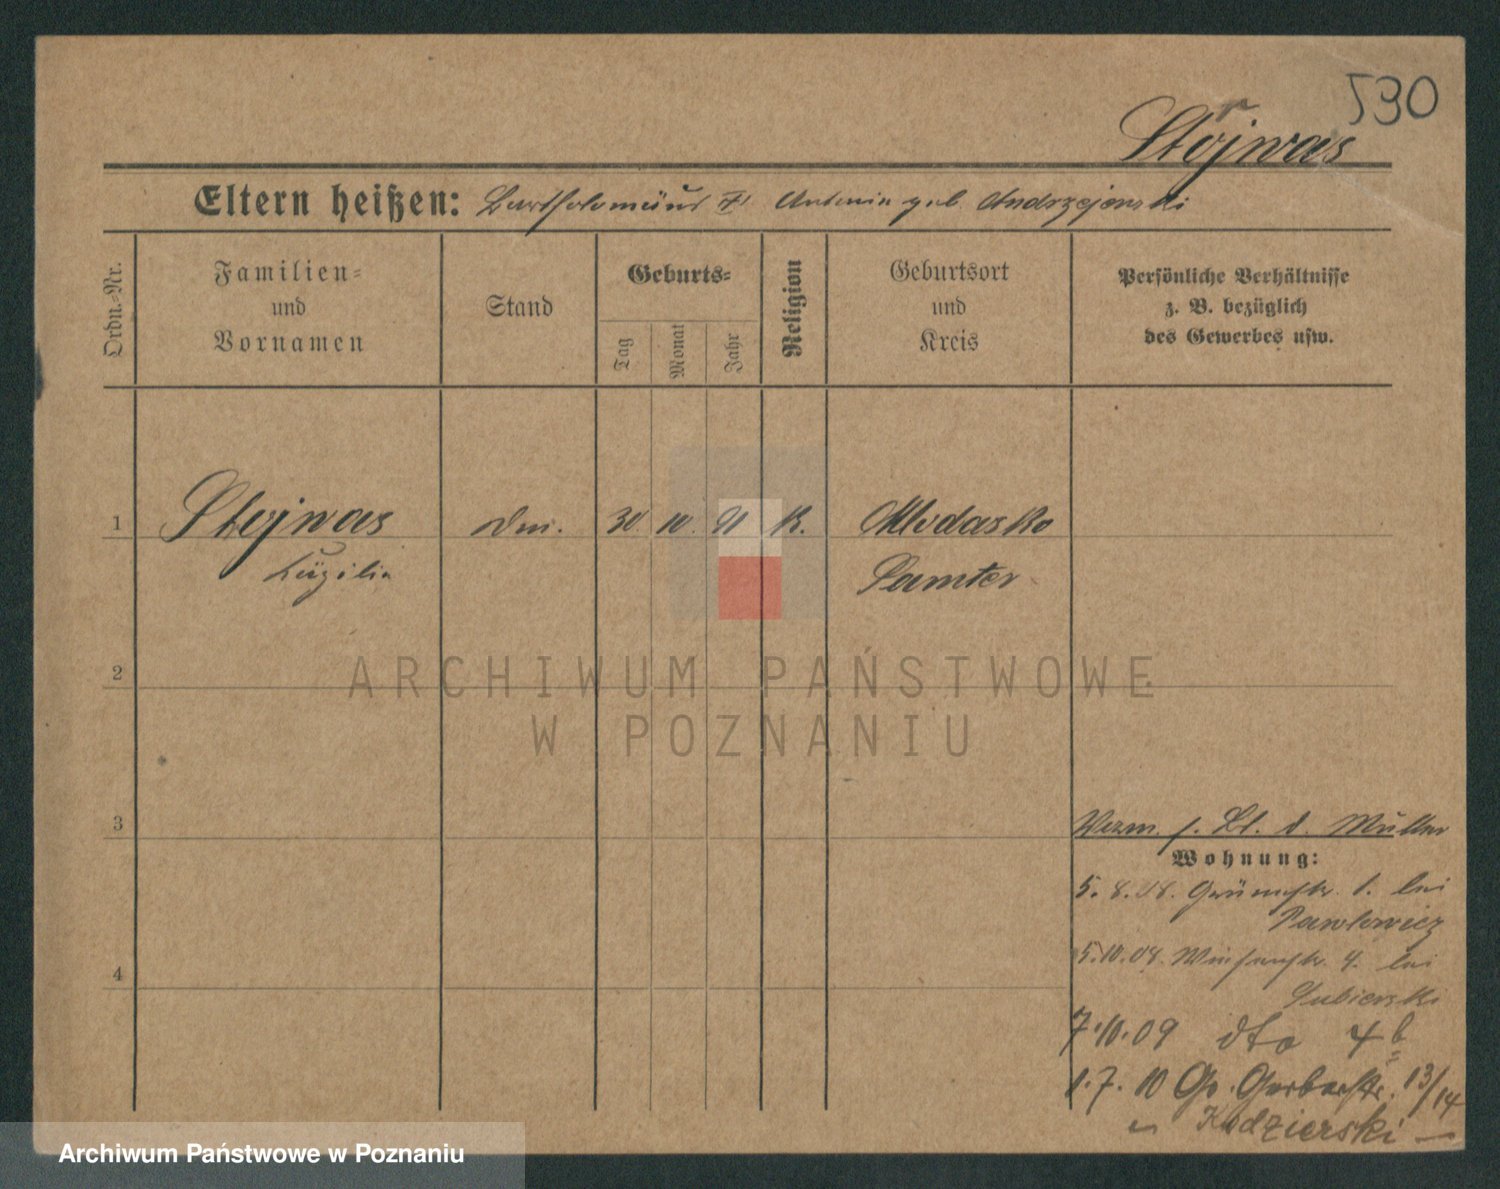 530
Stojwas
Eltern heißen: Bartholomäus Antonin geb. Andrzejewski
Ordn.-Nr.
Familien- und Vornamen
Stand
Geburts-
Tag
Monat
Jahr
Religion
Geburtsort und Kreis
Persönliche Verhältnisse
z. B. bezüglich
des Gewerbes usw.
1 Stojwas 30 10. 91 K. Mlodasko
Samter
2
ARCHIWUM PAŃSTWOWE
W POZNANIU
3
d. Müller
Wohnung:
5. 8. 08. Grünestr. 1. bei
Pawlowicz
5.10.08. Wiesenstr. 4. bei
Dubierski
7.10.09 dto 4b
1.7.10 Gr. Gerberstr. 13/14
Kadzierski
4
Archiwum Państwowe w Poznaniu